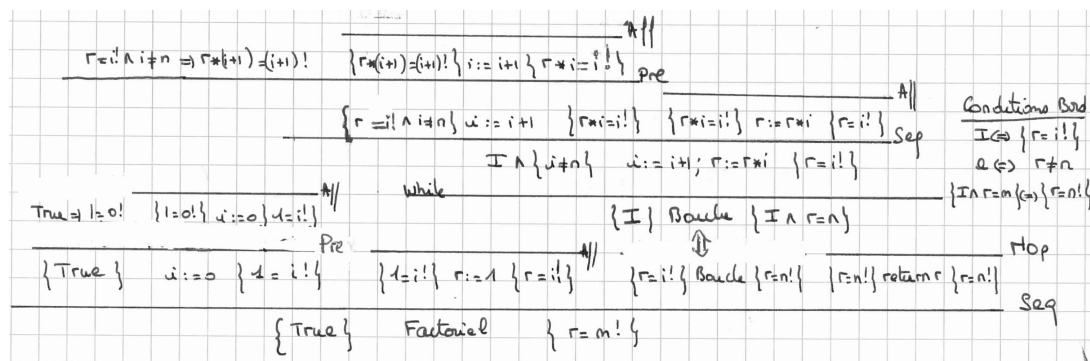 Aff
r=i! ∧ i≠n ⇒ r*(i+1)=(i+1)! {r*(i+1)=(i+1)!} i:=i+1 {r*i=i!}
Pre
Aff
{r=i! ∧ i≠n} i:=i+1 {r*i=i!} {r*i=i!} r:=r*i {r=i!}
Seq
I ∧ {i≠n} i:=i+1; r:=r*i {r=i!}
Conditions Bord
I⇔{r=i!}
e⇔ r≠n
{I∧r=n}⇔{r=n!}
Aff
While
True⇒1=0! {1=0!} i:=0 {1=i!}
{I} Boucle {I ∧ r=n}
Pre
⇕
Aff
Nop
{True} i:=0 {1=i!} {1=i!} r:=1 {r=i!} {r=i!} Boucle {r=n!} {r=n!} return r {r=n!}
Seq
{True} Factoriel {r=n!}